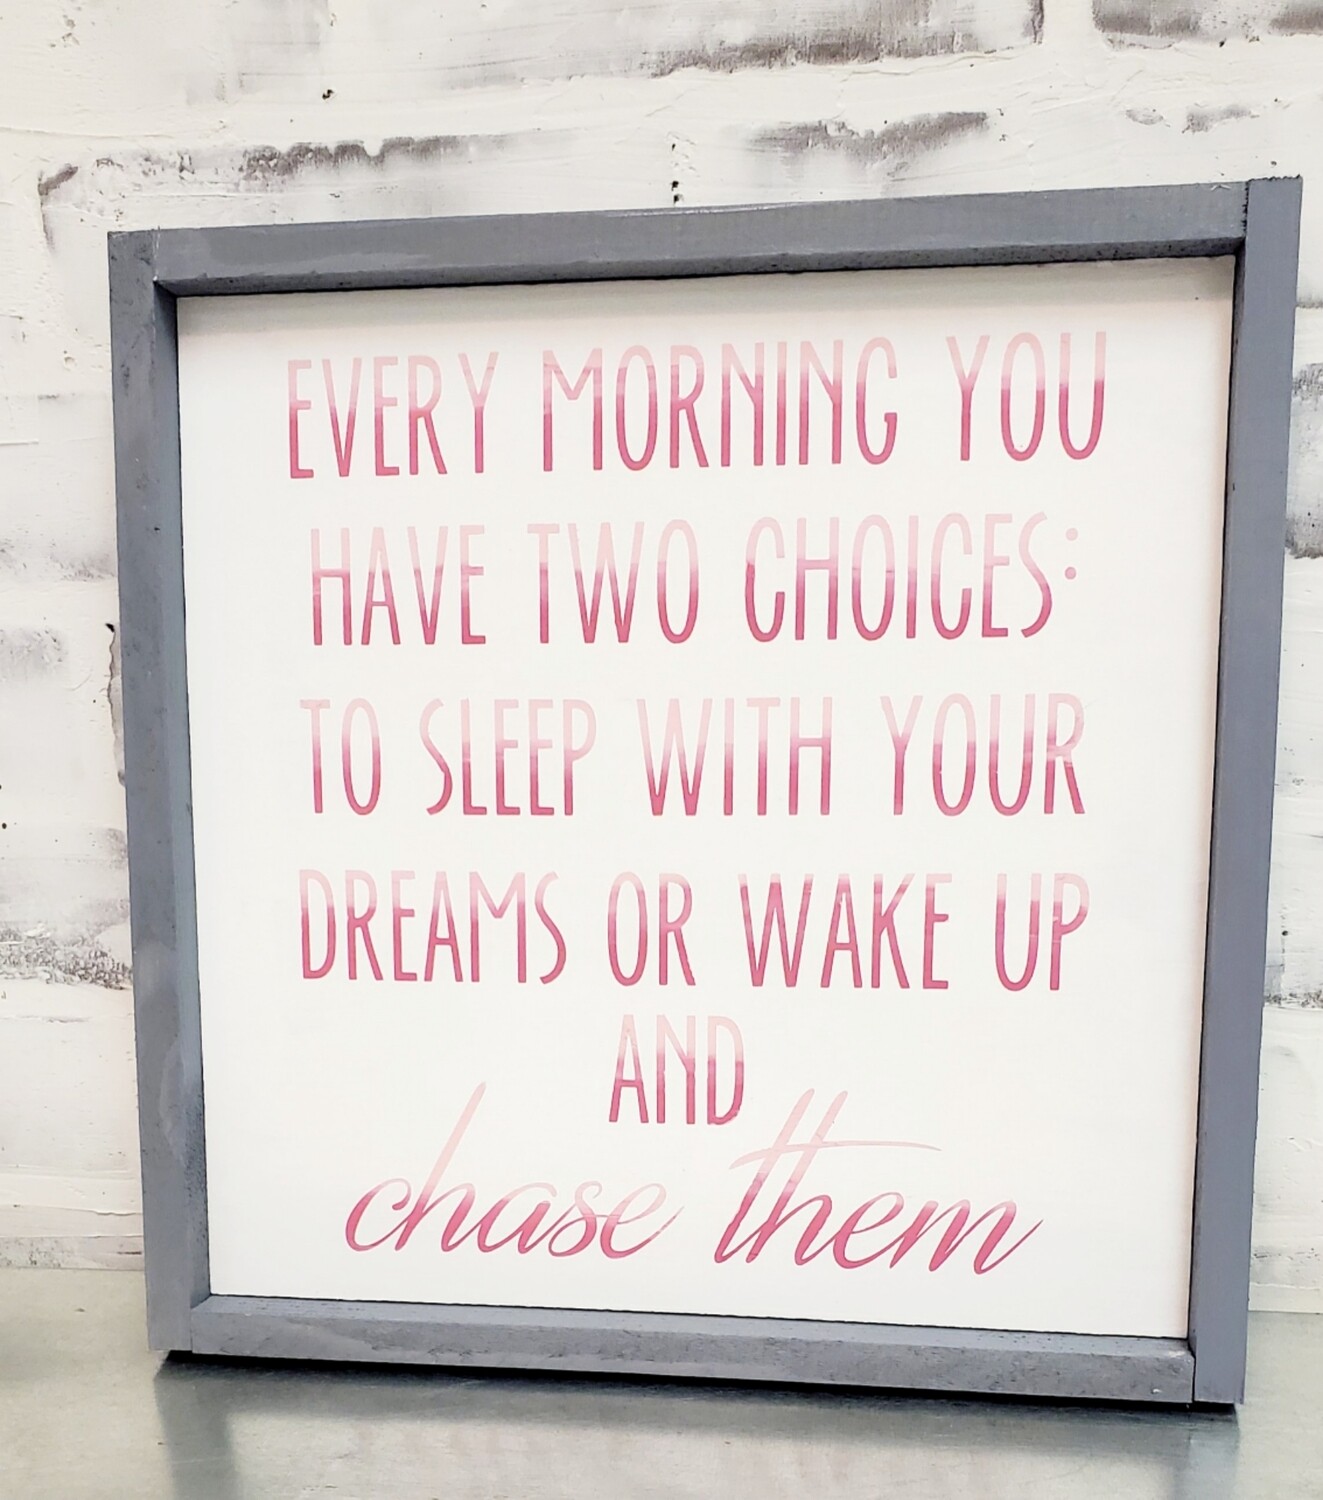 EVERY MORNING YOU
HAVE TWO CHOICES:
TO SLEEP WITH YOUR
DREAMS OR WAKE UP
AND
chase them